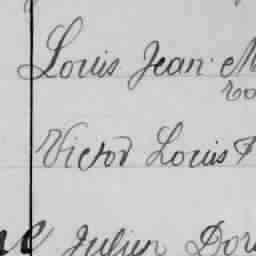 Louis Jean M
Victor Louis
ne Julien Dor